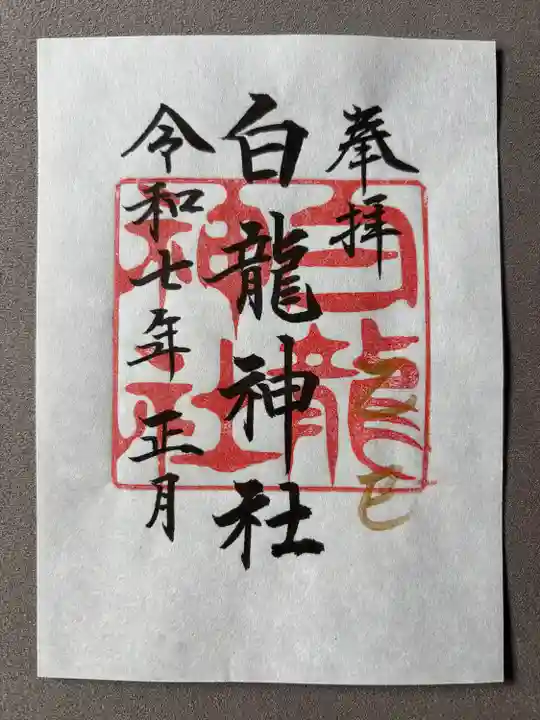 奉拝
乙巳
白龍神社
令和七年正月
白龍
神社